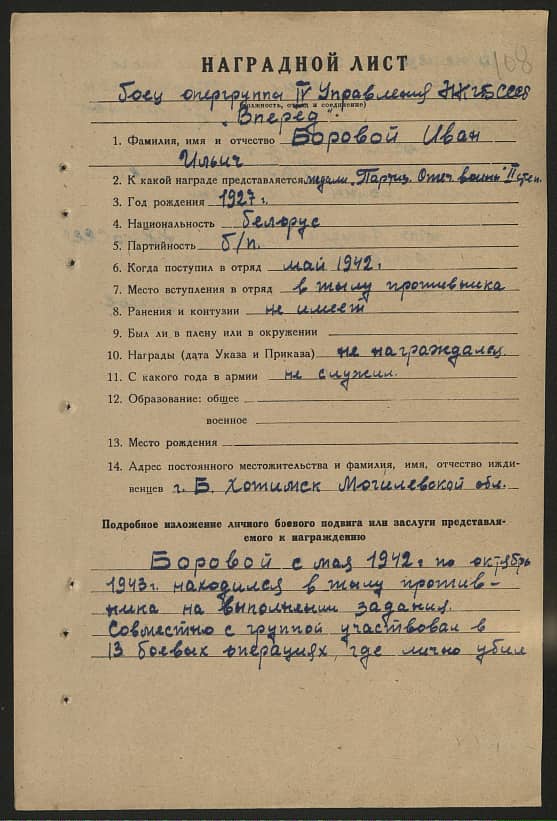 108
НАГРАДНОЙ ЛИСТ
Боец опергруппы IV Управления НКГБ СССР
(должность, отряд и соединение)
"Вперед".
1. Фамилия, имя и отчество Боровой Иван
Ильич
2. К какой награде представляется медали "Партиз. Отеч. войны" II степ.
3. Год рождения 1927 г.
4. Национальность белорус
5. Партийность б/п.
6. Когда поступил в отряд май 1942 г.
7. Место вступления в отряд в тылу противника
8. Ранения и контузии не имеет
9. Был ли в плену или в окружении
10. Награды (дата Указа и Приказа) не награждался.
11. С какого года в армии не служил.
12. Образование: общее
военное
13. Место рождения
14. Адрес постоянного местожительства и фамилия, имя, отчество ижди-
венцев г. Б. Хотимск Могилевской обл.
Подробное изложение личного боевого подвига или заслуги представля-
емого к награждению
Боровой с мая 1942 г. по октябрь
1943 г. находился в тылу против-
ника на выполнении задания.
Совместно с группой участвовал в
13 боевых операциях, где лично убил